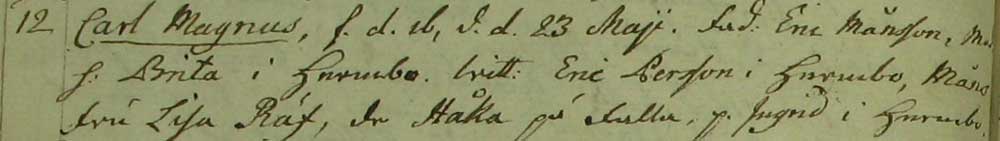 12 Carl Magnus, f. d. 16, d. d. 23 Maji. Fad: Eric Månsson, M..
h: Brita i Hermbo. witt: Eric Persson i Hermbo, Måns
fru Lisa Räf, dr Håka på Falla, p. Ingrid i Hermbo.